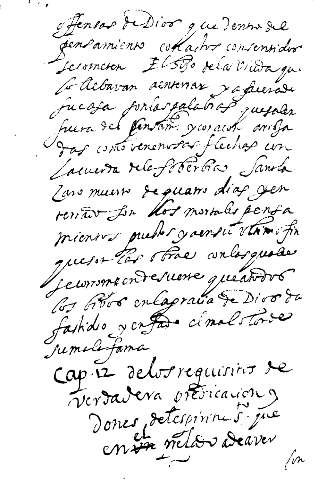 offensas de Dios que dentro del
pensamiento con actos consentidos
se cometen El hijo de la viuda que
le llebavan a enterrar ya fuera de
su casa son las palabras que salen
fuera del pensam.to y coraçon arroja
das como venenosas flechas con
la cuerda de la soberbia San la
Zaro muerto de quatro dias y en
terrado son los mortales pensa
mientos puestos ya en su ultimo fin
que son las obras con las quales
se corrompen de suerte que a todos
los bibos en la gracia de Dios da
fastidio y enfado el mal olor de
su mala fama
Cap. 12 de los requisitos de
verdadera predicacion y
Dones del espiritu S.to que
en el prelado a de aver